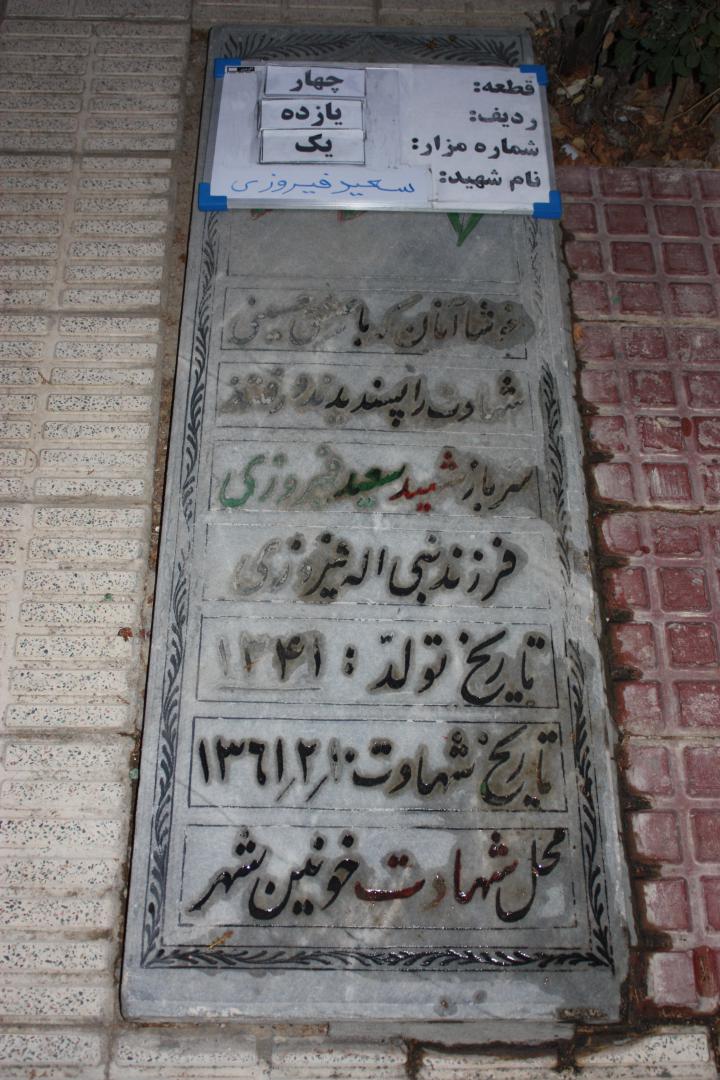 قطعه: چهار
ردیف: یازده
شماره مزار: یک
نام شهید: سعید فیروزی
خوشا آنان که با عشق حسینی
شهادت را پسندیدند و رفتند
سرباز شهید سعید فیروزی
فرزند نبی اله فیروزی
تاریخ تولّد: ۱۳۴۱
تاریخ شهادت: ۱۳۶۱٫۲٫۱۰
محل شهادت خونین شهر